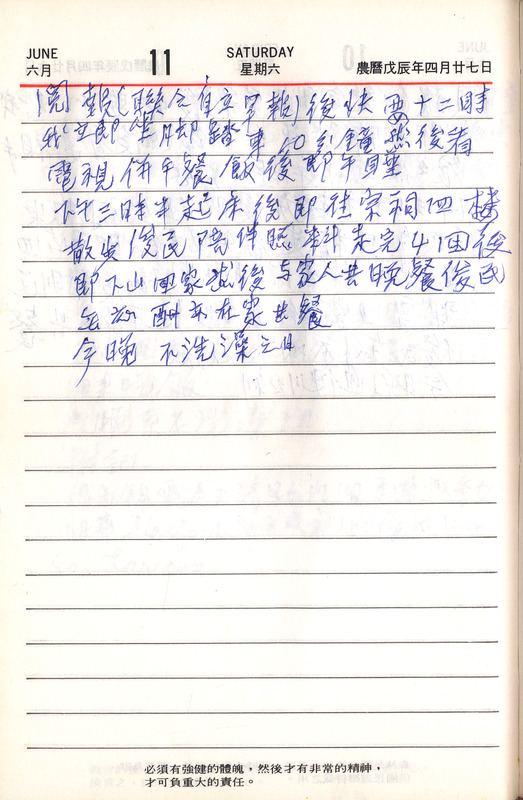 JUNE 11 SATURDAY
六月 星期六 農曆戊辰年四月廿七日
閱報(聯合自立早報)後快要十二時
我立即坐脚踏車20分鐘然後看
電視併午餐飯後即午睡
下午三時半起床後即往宗祠四樓
散步俊民陪伴照料走完4回後
即下山回家然後与家人共晚餐俊民
無應酬亦在家共餐
今晚不洗澡之日
必須有強健的體魄,然後才有非常的精神,
才可負重大的責任。